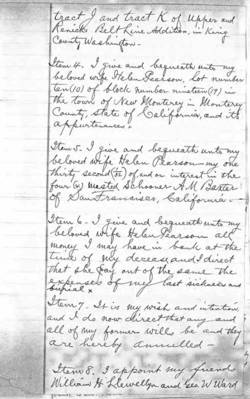 tract J and tract K of Upper and
Renicks Belt Line Addition, in King
County Washington.
Item 4. I give and bequeath unto my
beloved wife Helen Pearson, Lot number
ten (10) of block number nineteen (19) in
the town of New Monterey in Monterey
County, State of California, and its
appurtenances.
Item 5. I give and bequeath unto my
beloved wife Helen Pearson my one
thirty second (1/32) of and or interest in the
four (4) masted Schooner A M Baxter
of San Francisco, California.
Item 6 - I give and bequeath unto my
beloved wife Helen Pearson all
money I may have in bank at the
time of my decease, and I direct
that she pay out of the same the
expenses of my last sickness and
burial.
Item 7. It is my wish and intention
and I do now direct that any and
all of my former wills be and they
are hereby annulled -
Item 8. I appoint my friend
William H. Llewellyn and Geo. W Ward